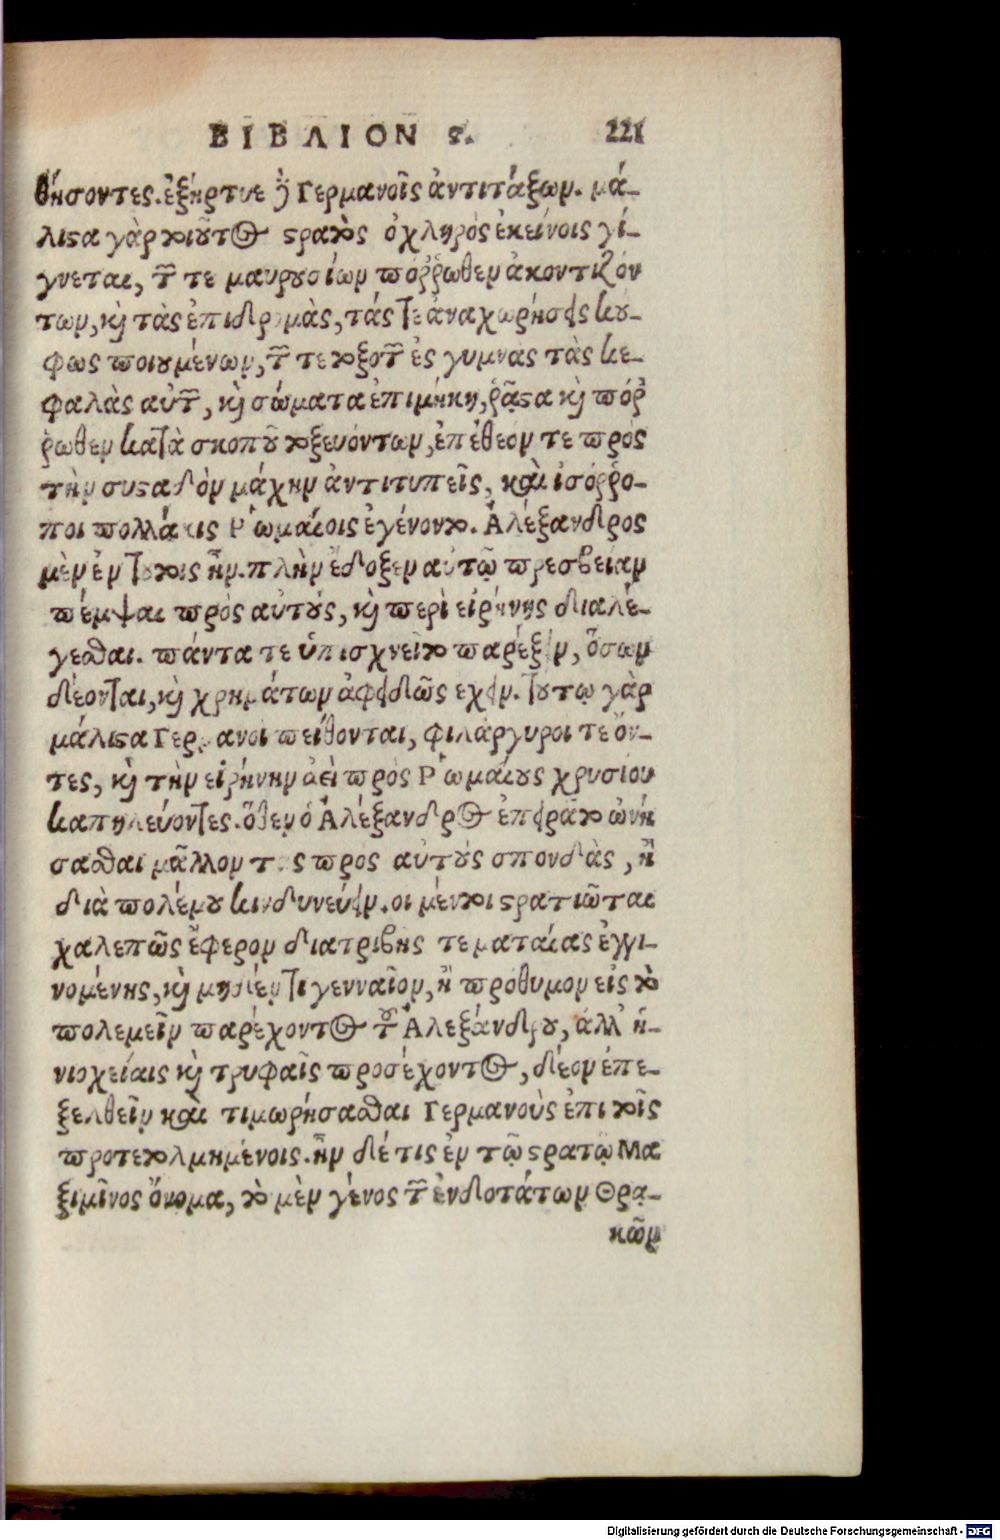 ΒΙΒΛΙΟΝ ϛ. 221
θήσοντες. ἐξήρτυε καὶ Γερμανοῖς ἀντιτάξων. μά-
λιϛα γὰρ τοιοῦτος ϛρατὸς ὀχληρὸς ἐκείνοις γί-
γνεται, τῶν τε μαυρουσίων πόῤῥωθεν ἀκοντιζόν
των, καὶ τὰς ἐπιδρομὰς, τάς τε ἀναχωρήσεις κού-
φως ποιουμένων, τῶν τε τοξοτῶν ἐς γυμνὰς τὰς κε-
φαλὰς αὐτῶν, καὶ σώματα ἐπιμήκη, ῥᾷϛα καὶ πόῤ
ῥωθεν κατὰ σκοποῦ τοξευόντων, ἐπέθεόν τε πρὸς
τὴν συϛαδὸν μάχην ἀντιτυπεῖς, καὶ ἰσόῤῥο-
ποι πολλάκις Ῥωμαίοις ἐγένοντο. Ἀλέξανδρος
μὲν ἐν τούτοις ἦν. πλὴν ἔδοξεν αὐτῷ πρεσβείαν
πέμψαι πρὸς αὐτούς, καὶ περὶ εἰρήνης διαλέ-
γεσθαι. πάντα τε ὑπισχνεῖτο παρέξειν, ὅσων
δέονται, καὶ χρημάτων ἀφειδῶς εχειν. τούτῳ γὰρ
μάλιϛα Γερμανοὶ πείθονται, φιλάργυροι τε ὄν-
τες, καὶ τὴν εἰρήνην ἀεὶ πρὸς Ῥωμαίους χρυσίου
καπηλεύοντες. ὅθεν ὁ Ἀλέξανδρος ἐπειρᾶτο ὠνή
σασθαι μᾶλλον τὰς πρὸς αὐτοὺς σπονδὰς, ἢ
διὰ πολέμου κινδυνεύειν. οι μέντοι ϛρατιῶται
χαλεπῶς ἔφερον διατριβῆς τε ματαίας ἐγγι-
νομένης, καὶ μηδέν τι γενναῖον, ἢ πρόθυμον εἰς τὸ
πολεμεῖν παρέχοντος τοῦ Ἀλεξάνδρου, ἀλλ' ἡ-
νιοχείαις καὶ τρυφαῖς προσέχοντος, δέον ἐπε-
ξελθεῖν καὶ τιμωρήσασθαι Γερμανοὺς ἐπι τοῖς
προτετολμημένοις. ἦν δέ τις ἐν τῷ ϛρατῷ Μα
ξιμῖνος ὄνομα, τὸ μὲν γένος τῶν ἐνδοτάτων Θρᾳ-
κῶν
Digitalisierung gefördert durch die Deutsche Forschungsgemeinschaft - DFG